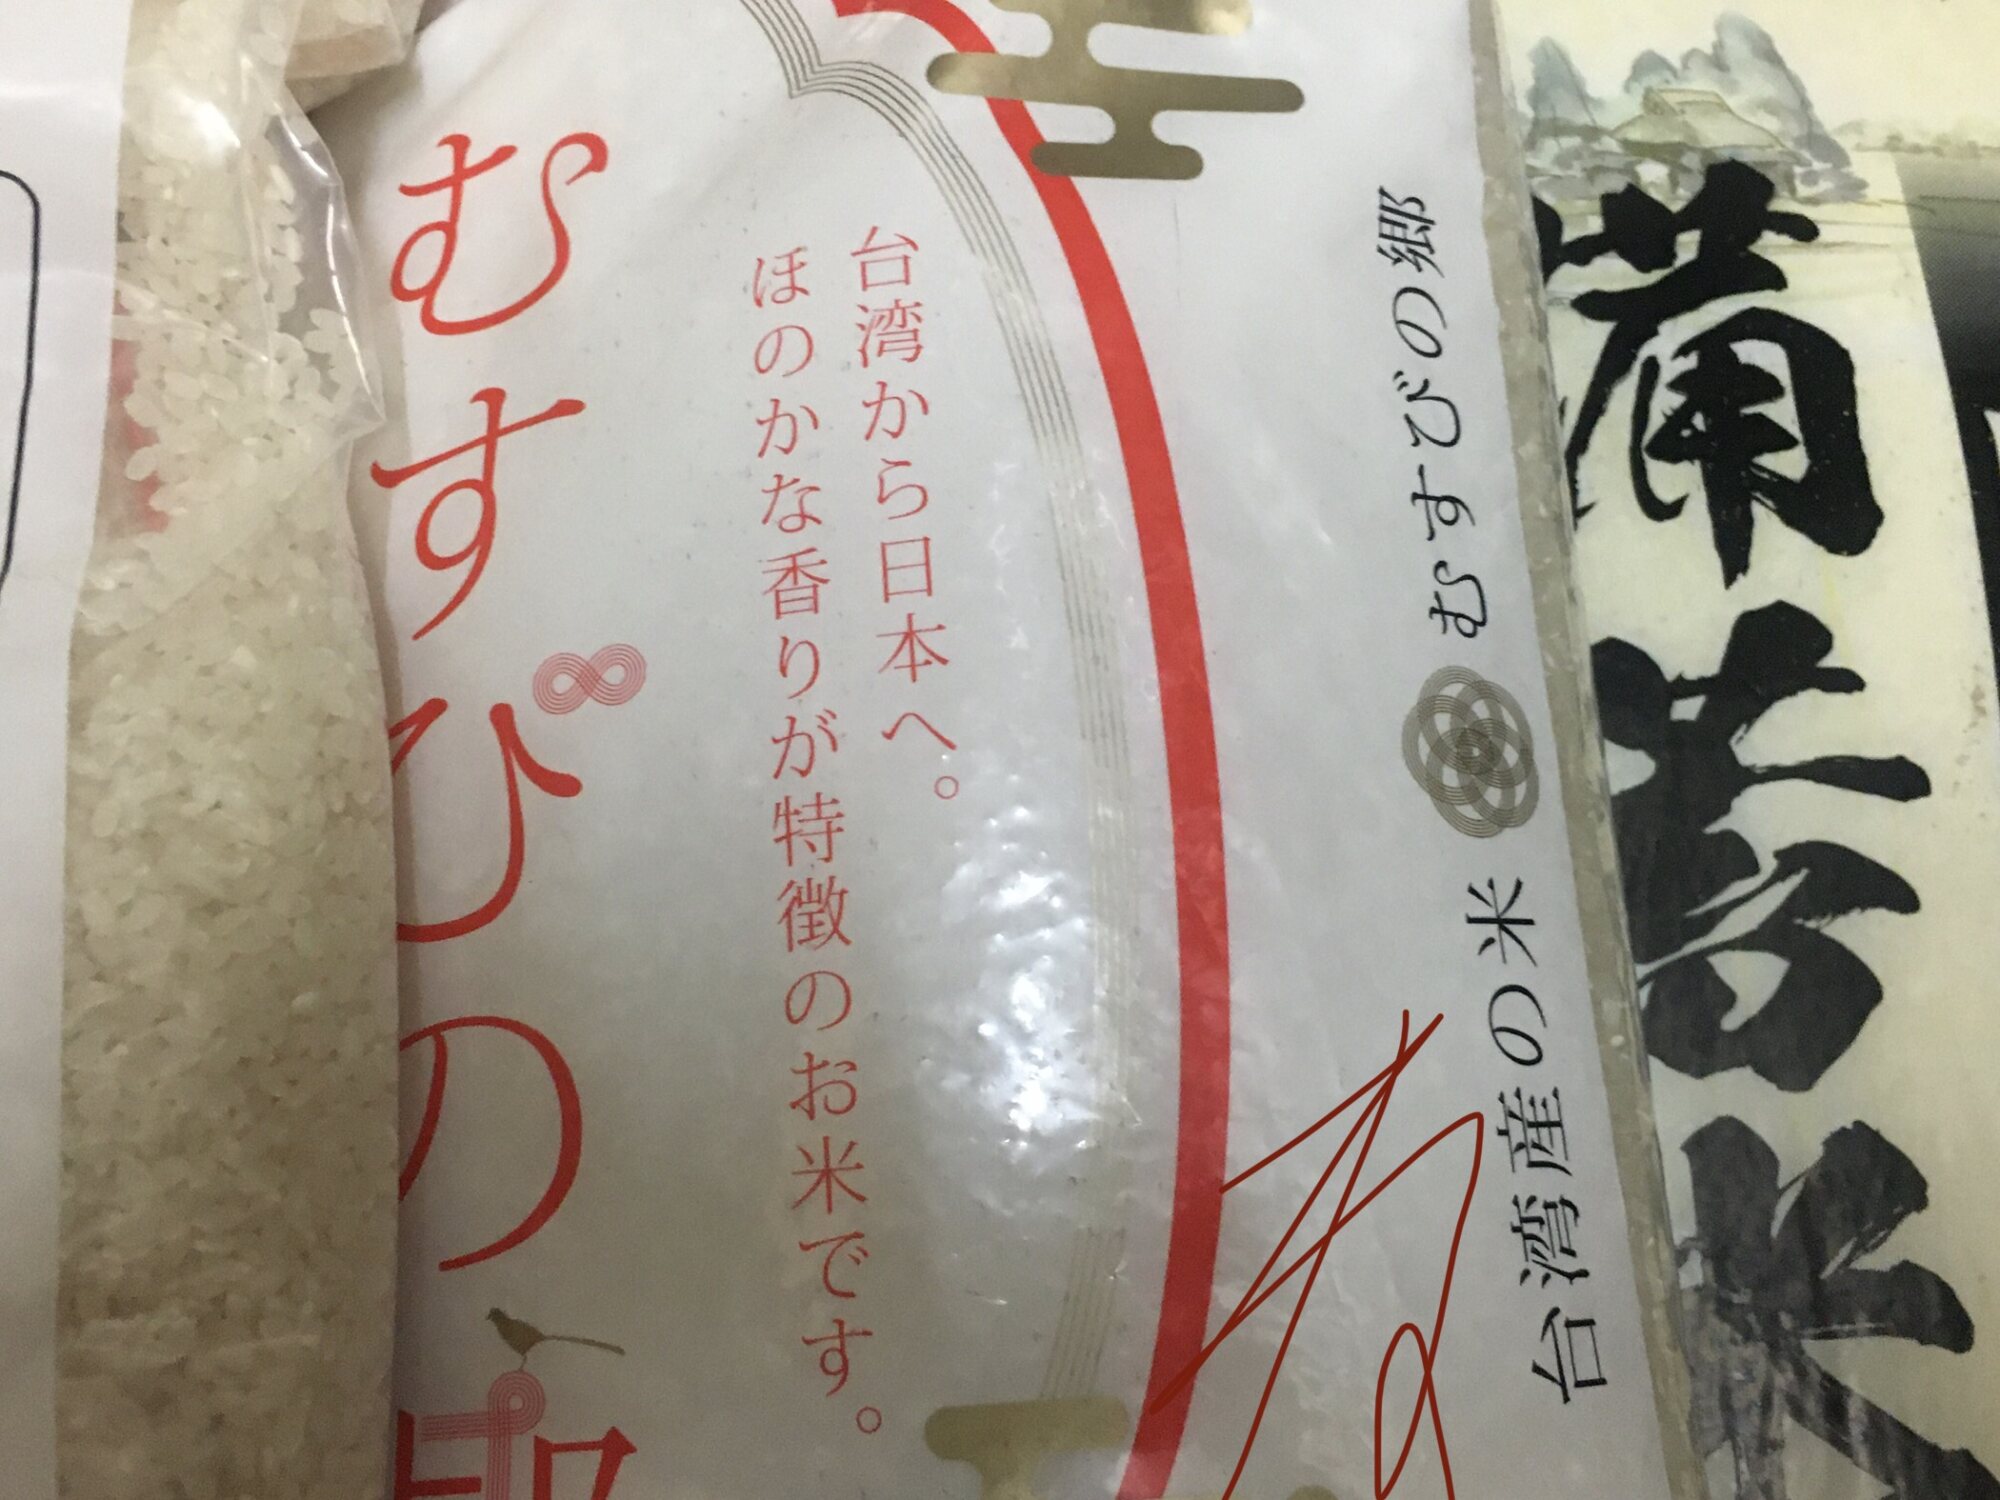 むすびの郷
台湾産の米 むすびの郷
台湾から日本へ。
ほのかな香りが特徴のお米です。
備蓄米